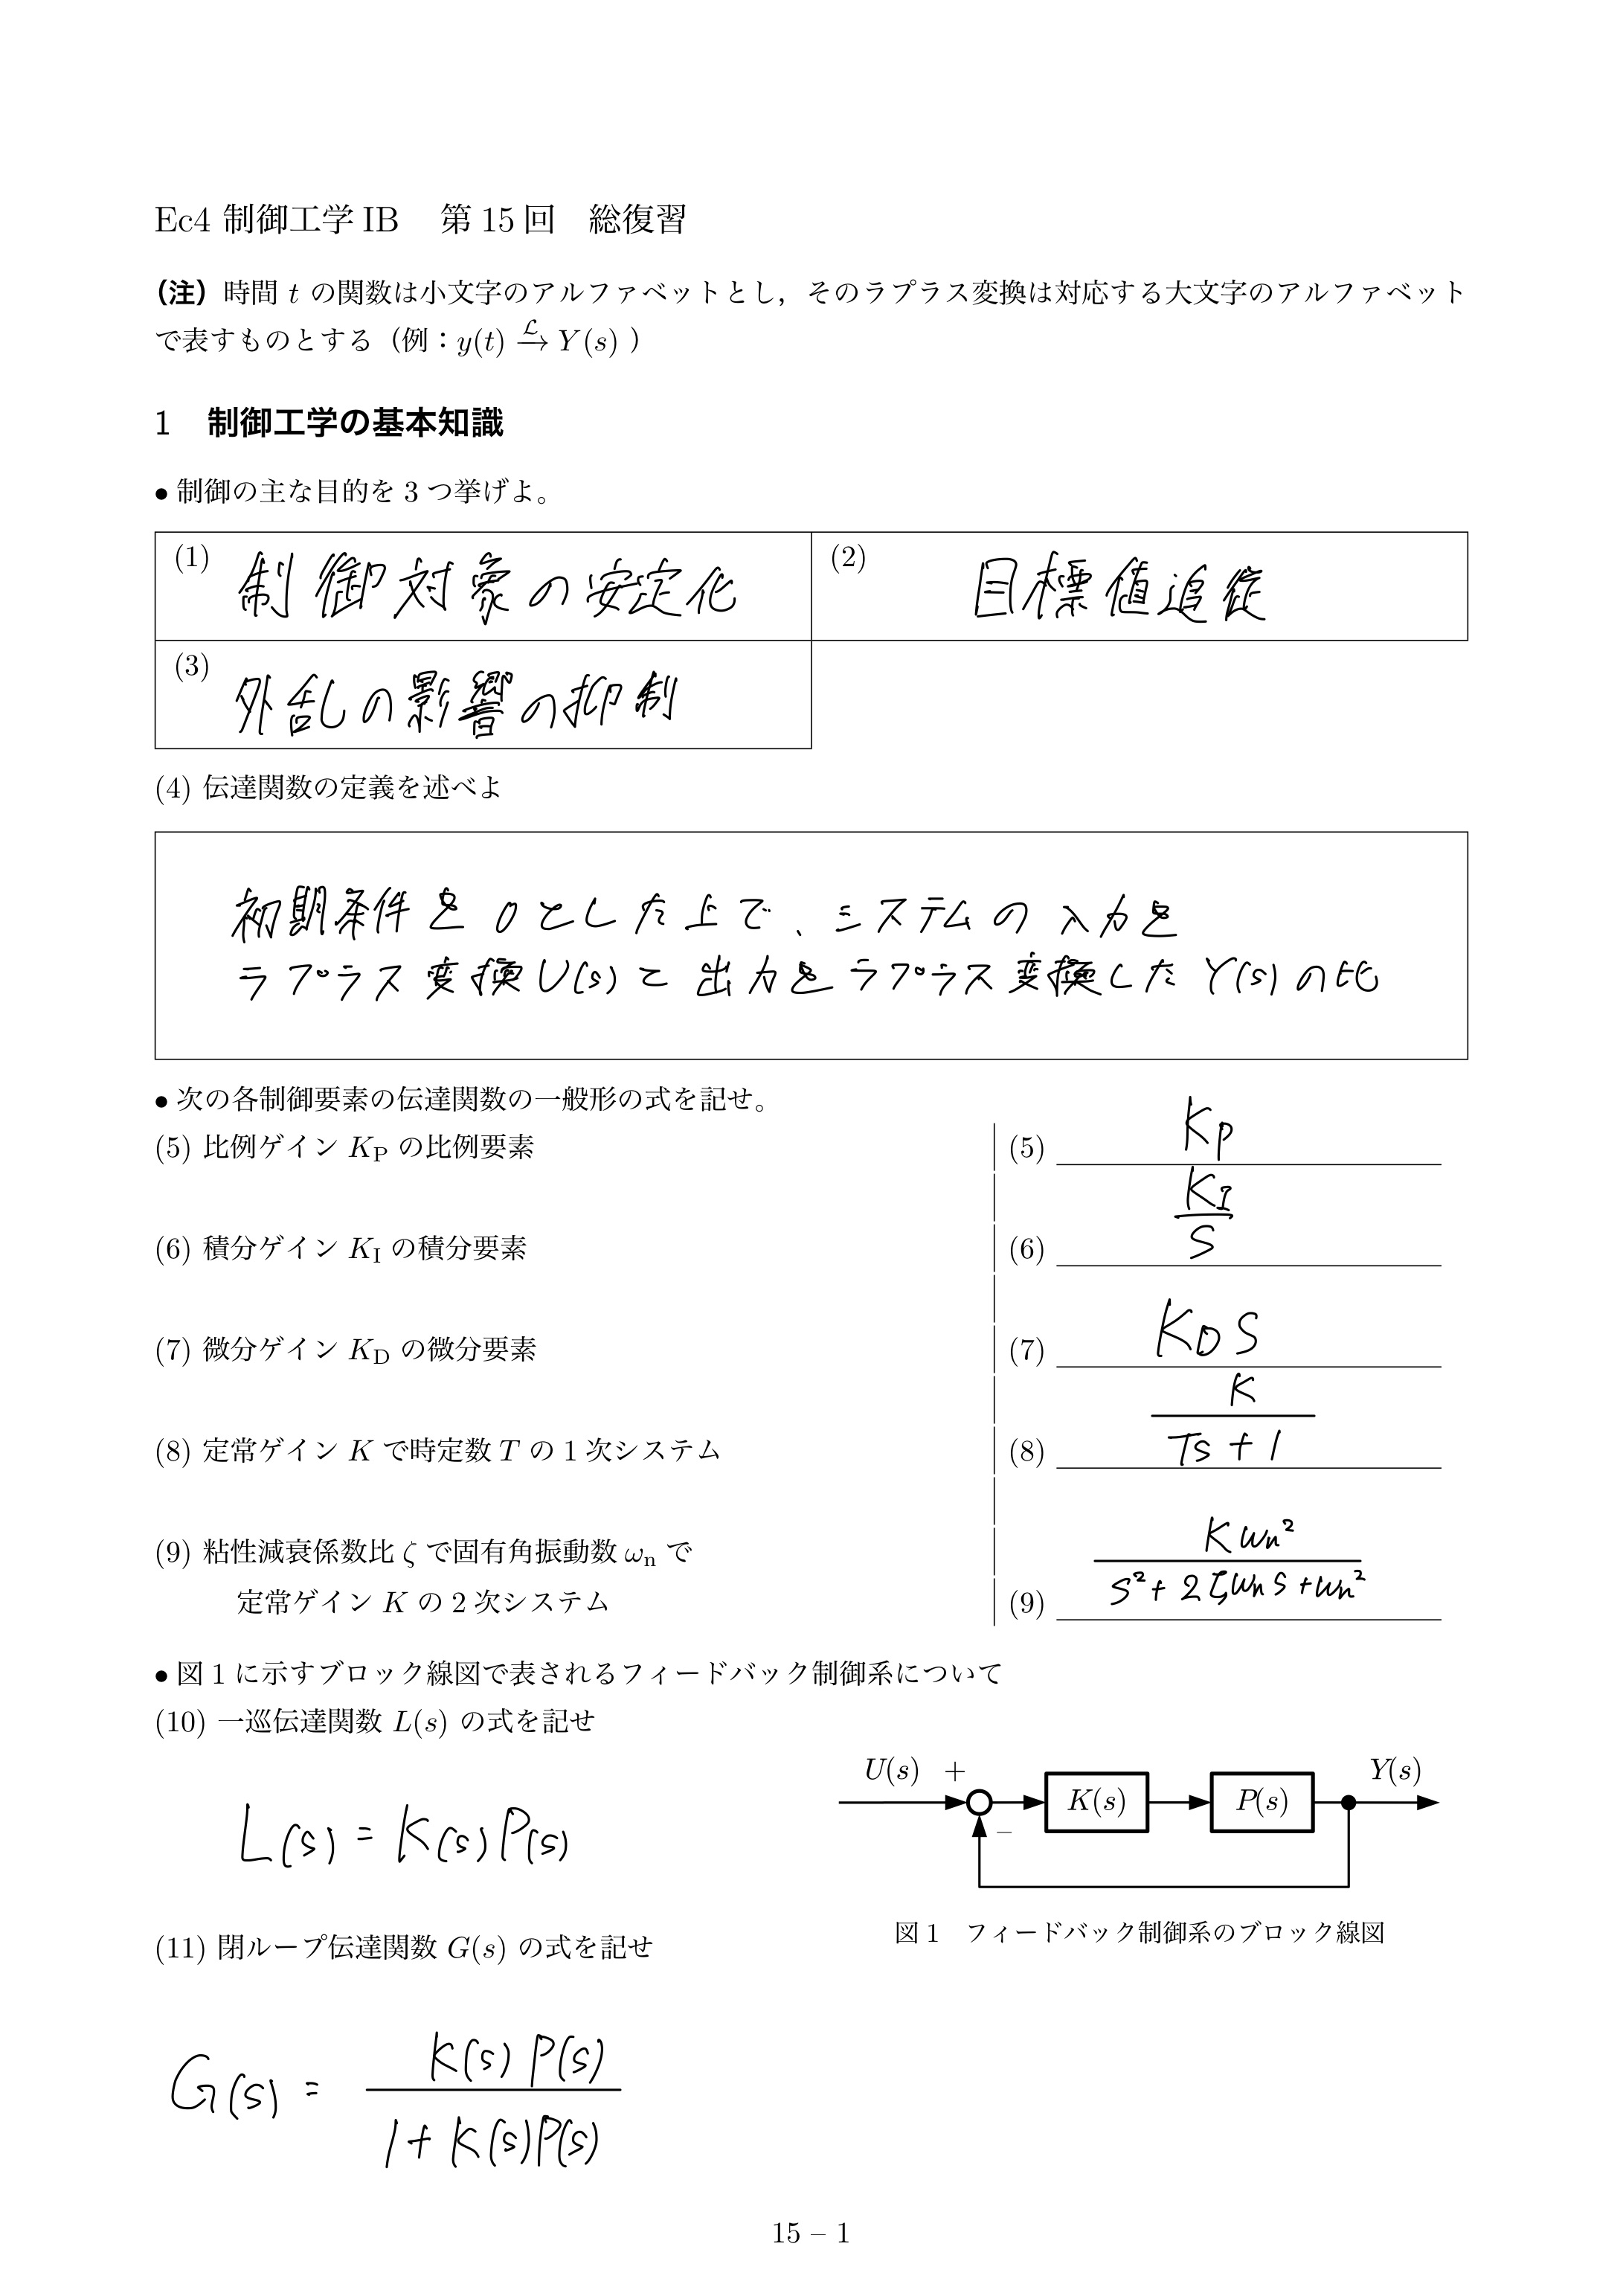 Ec4 制御工学 IB　第 15 回　総復習
（注）時間 t の関数は小文字のアルファベットとし，そのラプラス変換は対応する大文字のアルファベット
で表すものとする（例：y(t) →^ℒ Y(s) ）
1　制御工学の基本知識
● 制御の主な目的を 3 つ挙げよ。
(1) 制御対象の安定化
(2) 目標値追従
(3) 外乱の影響の抑制
(4) 伝達関数の定義を述べよ
初期条件を0とした上で、システムの入力を
ラプラス変換U(s)と出力をラプラス変換したY(s)の比
● 次の各制御要素の伝達関数の一般形の式を記せ。
(5) 比例ゲイン K_P の比例要素
(5) K_P
(6) 積分ゲイン K_I の積分要素
(6) K_I / s
(7) 微分ゲイン K_D の微分要素
(7) K_D s
(8) 定常ゲイン K で時定数 T の 1 次システム
(8) K / (Ts + 1)
(9) 粘性減衰係数比 ζ で固有角振動数 ω_n で
定常ゲイン K の 2 次システム
(9) Kω_n² / (s² + 2ζω_n s + ω_n²)
● 図 1 に示すブロック線図で表されるフィードバック制御系について
(10) 一巡伝達関数 L(s) の式を記せ
L(s) = K(s)P(s)
U(s) + − K(s) P(s) Y(s)
図 1　フィードバック制御系のブロック線図
(11) 閉ループ伝達関数 G(s) の式を記せ
G(s) = K(s)P(s) / (1 + K(s)P(s))
15 – 1